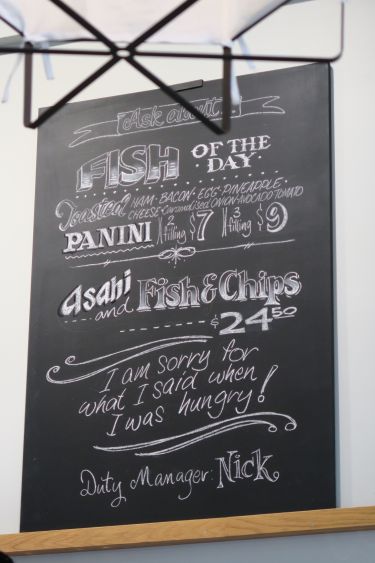 Ask about
FISH OF THE DAY
Toasted HAM · BACON · EGG · PINEAPPLE
CHEESE · Caramelised ONION · AVOCADO · TOMATO
PANINI 2 filling $7 3 filling $9
Asahi and Fish & Chips
$24.50
I am sorry for
what I said when
I was hungry!
Duty Manager: Nick